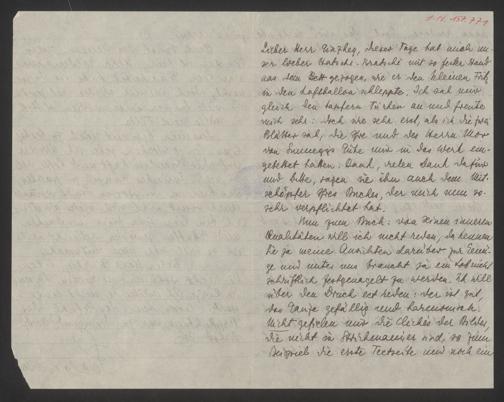 Lieber Herr Ginzkey, dieser Tage hat auch un-
ser lieber Hatschi-Bratschi mit so fester Hand
aus dem Bett gezogen, wie er den kleinen Fritz
in den Luftballon schleppte. Ich sah mir
gleich den tapfern Türken an und freute
mich sehr: doch wie sehr erst, als ich die
Blätter sah, die Ihre und des Herrn Mor
von Sunnegg Güte mir in das Werk ein-
gebettet hatten: Dank, vielen Dank dafür
und bitte, sagen sie ihn auch dem Mit-
schöpfer Ihres Buches, der mich nun so
sehr verpflichtet hat.
Nun zum Buch: von seinen inneren
Qualitäten will ich nicht reden, da kennen
Sie ja meine Ansichten darüber zur Genü-
ge und unter uns braucht ja ein
schriftlich festgenagelt zu werden. Ich will
über den Druck erst reden: der ist gut,
das Ganze gefällig und harmonisch.
Nicht gefielen mir die Clichés der Bilder,
die nicht in Strichmanier sind, so zum
Beispiel die erste Textseite und noch ein